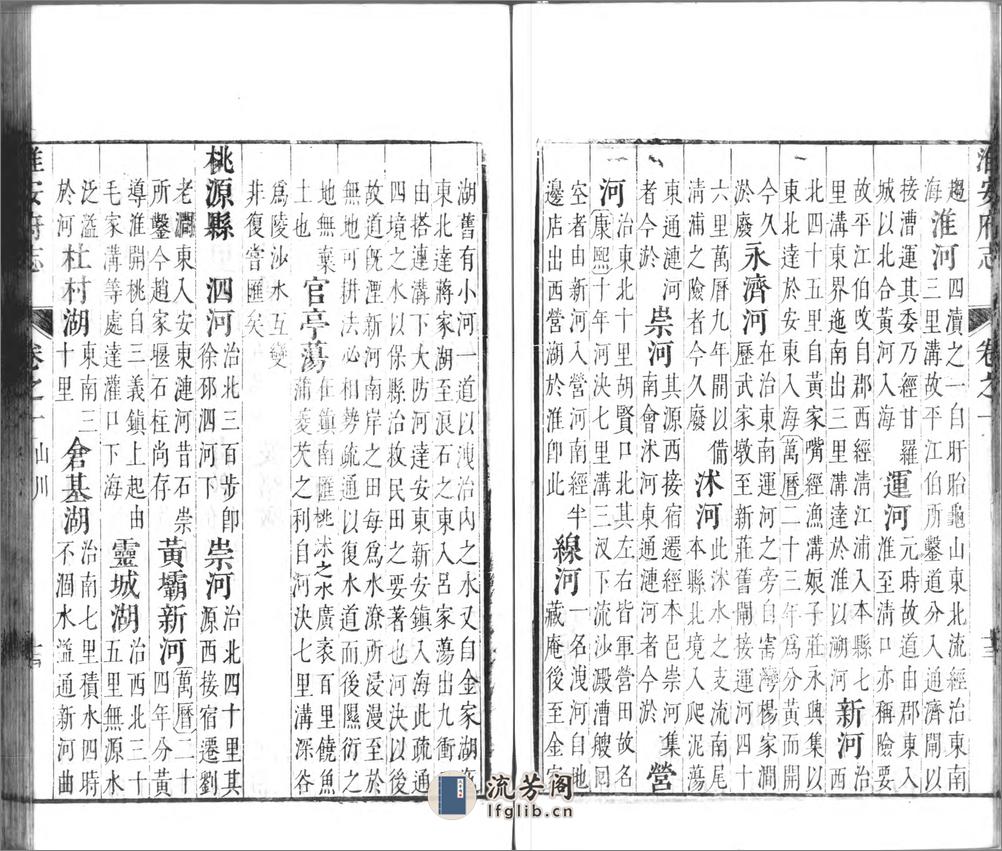 淮安府志
卷之一
十三
趨海 淮河 四瀆之一自盱眙龜山東北流經治東南
三里溝故平江伯所鑿道分入通濟開以
接漕運其委乃經甘羅
城以北合黃河入海 運河 元時故道由郡東入
淮至清口亦稱險要
故平江伯改自郡西經清江浦入本縣七
里溝東界迤南出三里溝達於淮以溯河 新河 治西
北四十五里自黃家嘴經漁溝娘子莊永興集以
東北達於安東入海萬曆二十三年爲分黃而開
今久淤廢 永濟河 在治東南運河之旁自窰灣楊家澗
歷武墩至新莊舊閘接運河四十
六里萬曆九年間以備
清浦之險者今久廢 沭河 此沭水之支流南尾
本縣北境入爬蕩
東通漣河者今於 崇河 其源西接宿遷經本邑崇河集
南會沭河東通漣河者今於 營
河 治東北十里胡賢口北其左右皆軍營田故名
康熙十年河決七里溝三汊下流沙澱漕艘囘
空者由新河入營河南經半
邊店出西營湖於淮即此 線河 一名洩河自地
藏庵後至金家
湖舊有小河一道以洩治內之水又自金家湖
東北達蔣家湖至浪石之東入呂家蕩出九衝
由塔連溝下大防河達安東新安鎮入海此疏通
四境之水以保縣治救民田之要著也河決以後
故道旣湮新河南岸之田每爲水潦所浸漫至於
無地可耕法必相勢疏通以復水道而後隰衍之
地無棄土也 官亭蕩 在鎮南匯桃沭之水廣袤百里饒魚
蒲菱芡之利自河決七里溝深谷
爲陵沙水互變
非復嘗匯矣
桃源縣 泗河 治北三百步卽
徐邳泗河下 崇河 治北四十里其
源西接宿遷劉
老澗東入安東漣河昔石崇
所鑿今趙家堰石柱尚存 黃壩新河 萬曆二十
四年分黃
導淮開自桃三義鎮上起由
毛家溝等處達灌口下海 靈城湖 治西北三十
五里無源水
泛溢於河 杜村湖 東南三十里 倉基湖 治南七里積水四時
不涸水溢通新河曲
淮安府志
卷之一
山川
十四
流芳阁
lfglib.cn